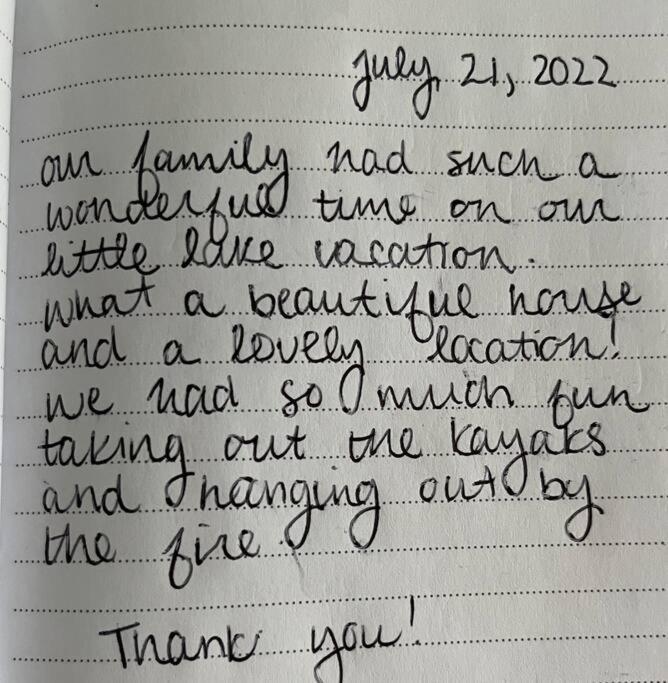 july 21, 2022
our family had such a
wonderful time on our
little lake vacation.
what a beautiful house
and a lovely location!
we had so much fun
taking out the kayaks
and hanging out by
the fire.
Thank you!